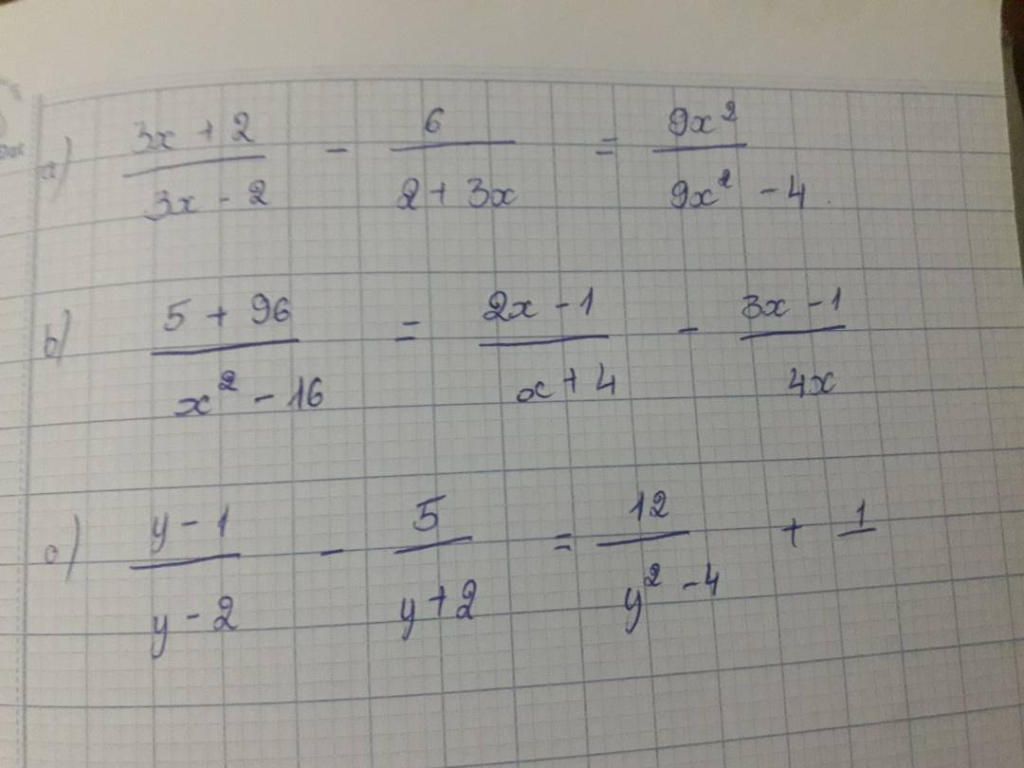 a) (3x + 2)/(3x - 2) - 6/(2 + 3x) = 9x²/(9x² - 4)
b) (5 + 96)/(x² - 16) = (2x - 1)/(x + 4) - (3x - 1)/(4x)
c) (y - 1)/(y - 2) - 5/(y + 2) = 12/(y² - 4) + 1/